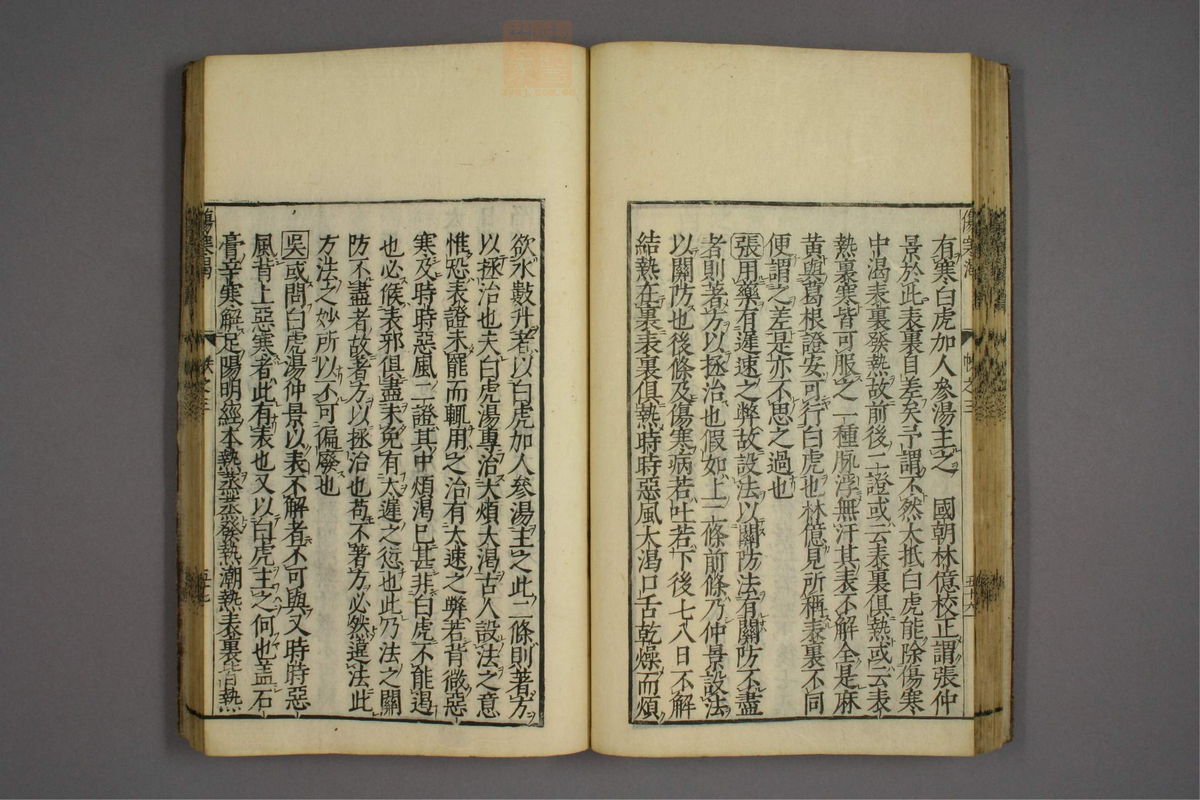 有寒白虎加人參湯主之　國朝林億校正謂張仲
景於此表裏自差矣予謂不然大抵白虎能除傷寒
中渴表裏發熱故前後二證或云表裏俱熱或云表
熱裏寒皆可服之一種脉浮無汗其表不解全是麻
黄與葛根證安可行白虎也林億見所稱表裏不同
便謂之差是亦不思之過也
張用藥有遲速之弊故設法以關防法有關防不盡
者則著方以拯治也假如上二條前條乃仲景設法
以關防也後條及傷寒病若吐若下後七八日不解
結熱在裏表裏俱熱時時惡風大渴口舌乾燥而煩
欲水數升者以白虎加人參湯主之此二條則著方
以拯治也夫白虎湯專治大煩大渴古人設法之意
惟恐表證未罷而輒用之治有太速之弊若背微惡
寒及時時惡風二證其中煩渴已甚非白虎不能遏
也必候表邪俱盡未免有太遲之愆也此乃法之關
防不盡者故著方以拯治也苟不著方必然違法此
方法之妙所以不可偏廢也
吳或問白虎湯仲景以表不解者不可與又時時惡
風背上惡寒者此有表也又以白虎主之何也盖石
膏辛寒解足陽明經本熱蒸蒸發熱潮熱表裏皆熱
五十六
五十七